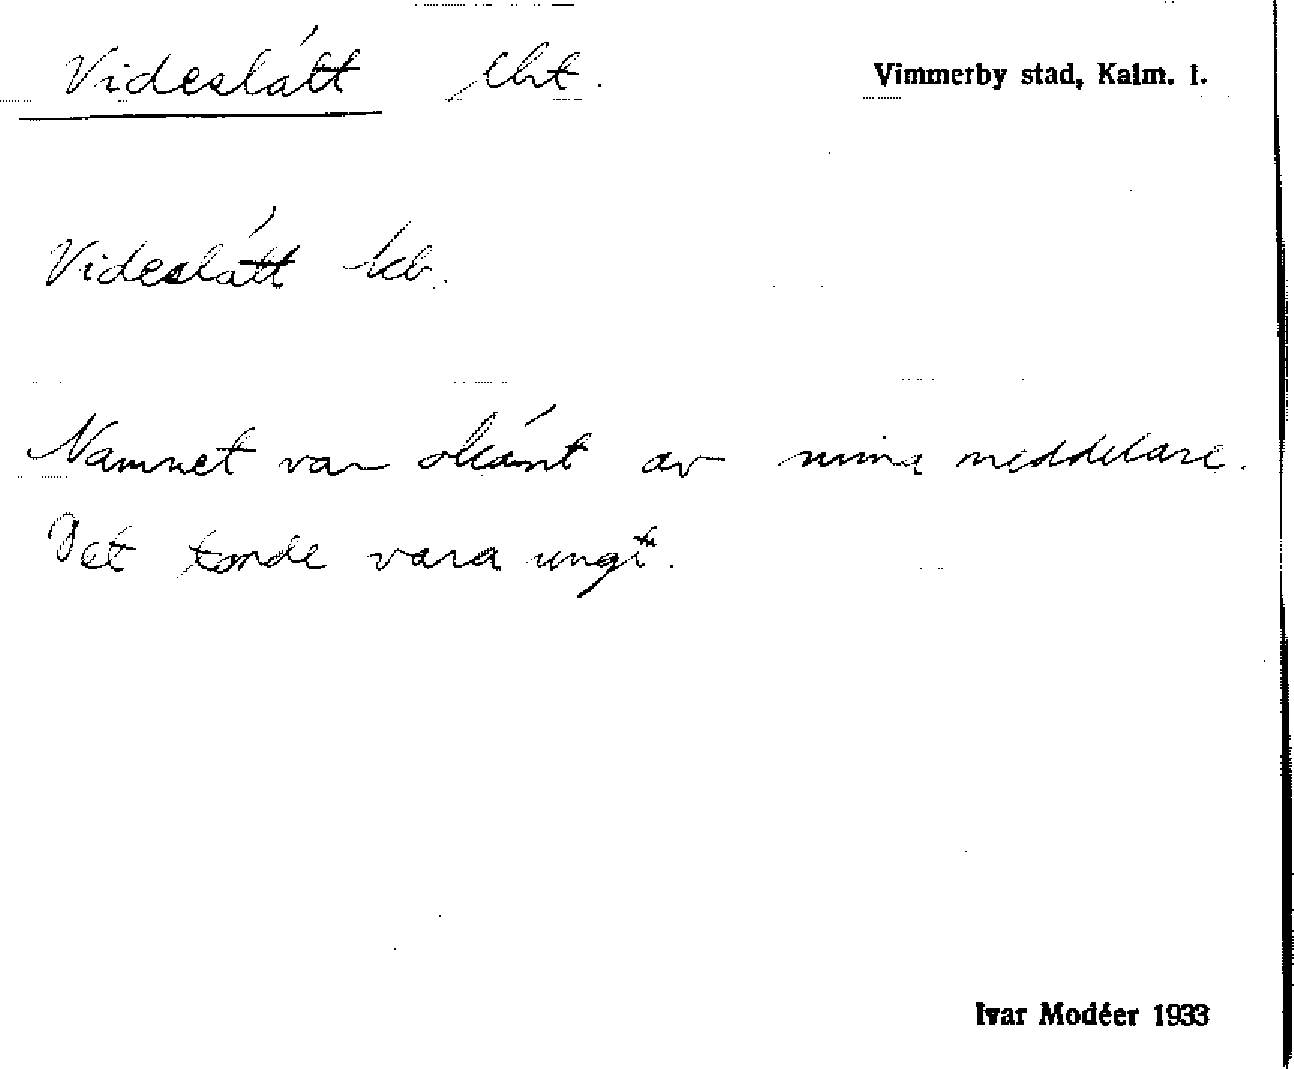 Videslätt lht. Vimmerby stad, Kalm. l.
Videslätt kb.
Namnet var okänt av mina meddelare.
Det torde vara ungt.
Ivar Modéer 1933